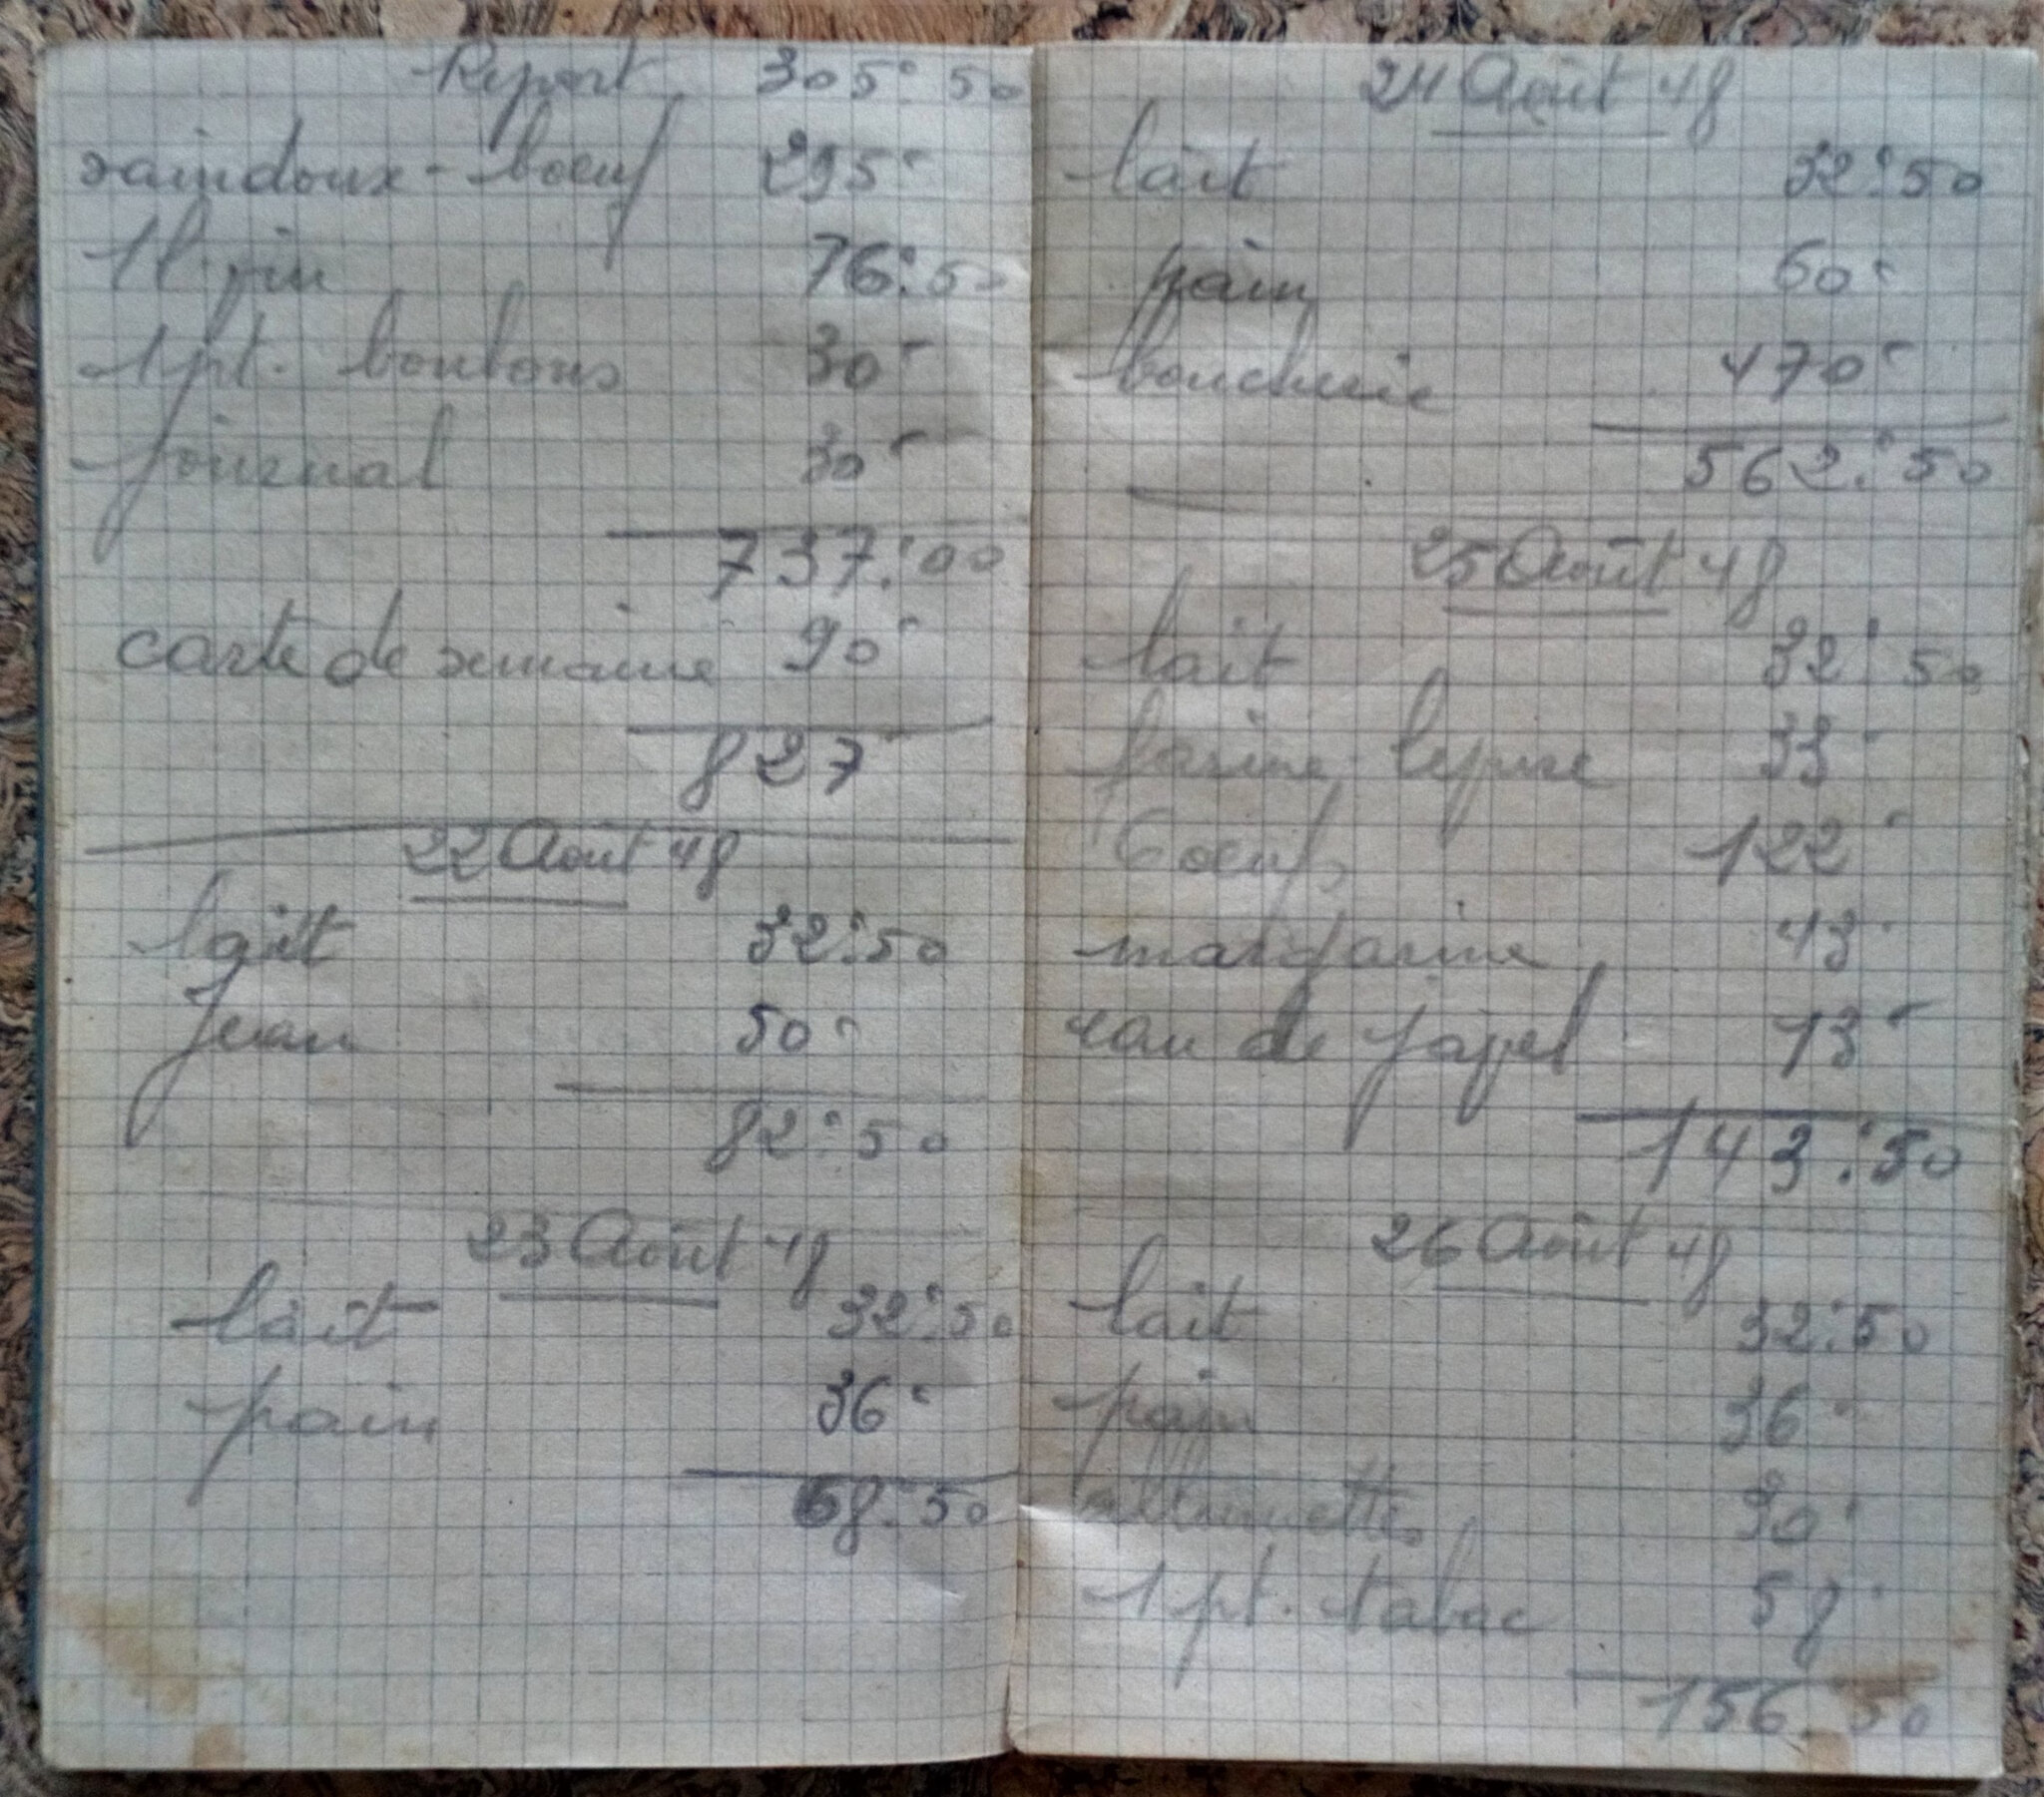 Report 305: 50
saindoux - boeuf 295-
1 l. vin 76: 50
1 pt. bonbons 30-
journal 30-
737: 00
carte de semaine 90-
827-
22 Août 48
lait 32: 50
Jean 50-
82: 50
23 Août 48
lait 32: 50
pain 36-
68: 50
24 Août 48
lait 32: 50
pain 60-
boucherie 470-
562: 50
25 Août 48
lait 32: 50
farine, levure 33-
6 oeufs 122-
margarine 43-
eau de javel 13-
143: 50
26 Août 48
lait 32: 50
pain 36-
allumettes 30-
1 pt. tabac 58-
156: 50